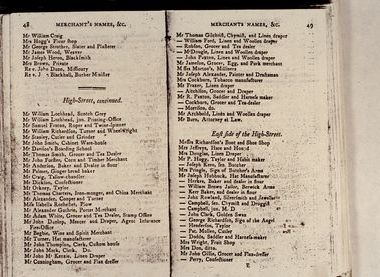 48 MERCHANT'S NAMES, &c.
Mr William Craig
Mrs Hogg's Flour shop
Mr George Strother, Slater and Plaisterer
Mr James Wood, Weaver
Mr Joseph Heron, Blacksmith
Mrs Brown, Private
Rev. John Blane, Ministry
Rev. J. Blackhall, Burher Minister
High-Street, continued.
Mr William Lockhead, Scotch Grey
Mr William Lockhead, jun. Posting-Office
Mr Samuel Fenton, Roper and Twine Spinner
Mr William Richardson, Turner and Wheel-Wright
Mr Stanley, Cutler and Grinder
Mr John Smith, Cabinet Ware-house
Mr Davison's Boarding School
Mr Thomas Smith, Grocer and Tea Dealer
Mr John Forster, Corn and Timber Merchant
Mr Anderson, Baker and Dealer in flour
Mr Palmer, Ginger bread baker
Mr Craig, Tallow-chandler
Mr Dickson, Confectioner
Mr Orkney, Taylor
Mr Thomas Charters, Iron-monger, and China Merchant
Mr Alexander, Cooper and Turner
Mrs Isabella Rochester, Flour
Mr Alexander Guthrie, Porter Merchant
Mr Adam White, Grocer and Tea Dealer, Stamp Office
Mr John Dunlop, Mercer and Draper, Agent Insurance
Fire-Office
Mr Begbie, Wine and Spirit Merchant
Mr Turner, Hat manufacturer
Mr John Thompson, Clerk, Custom house
Mr John Clark, Clerk, Do.
Mr John M'Kenzie, Linen Draper
Mr Cunningham, Grocer and Flax dresser
MERCHANT'S NAMES, &c. 49
Mr Thomas Gilchrist, Chymist, and Linen draper
— William Ford, Linen and Woollen draper
— Robson, Grocer and Tea dealer
— M'Dougle, Linen and Woollen draper
— John Paxton, Linen and Woollen draper
Mr Jameson, Grocer, Egg, and Pork merchant
Miss Morton's, Milliners
Mr Joseph Alexander, Painter and Draftsman
Mrs Cockburn, Tobacco manufacturer
Mr Frazer, Linen draper
— Aitchison, Grocer and Draper
Mr R. Paxton, Saddler and Harness maker
— Cockburn, Grocer and Tea-dealer
— Morrison, do.
Mr Archbold, Linen and Woollen draper
Mr Burn, Attorney at Law.
East side of the High-Street.
Messrs Richardson's Boot and Shoe Shop
Mrs Jefferys, Hare and Hound
Mrs Douglas, Linen Draper
Mr P. Hogg, Taylor and Habit-maker
— Joseph Kerr, sen. Butcher
Mrs Pringle, Sign of Butcher's Arms
Mr Joseph Holbrook, Hat Manufacturer
— Herkes, Baker and dealer in flour
— William Brown Tailor, Berwick Arms
— Kerr Baker, and dealer in flour
— John Rowland, Silversmith and Jeweller
— Campbell, sen. Chymist and Druggist
— Campbell, jun. M. D
— John Clark, Golden Swan
— George Richardson, Sign of the Angel
— Henderson, Taylor
— Pat. Mullen, Cutler
— Dodds, Saddler and Harness-maker
Mrs Wright, Fruit Shop
Mrs Dun, ditto
Mr John Gillie, Grocer and Flax-dresser
— Henry, Confectioner
E